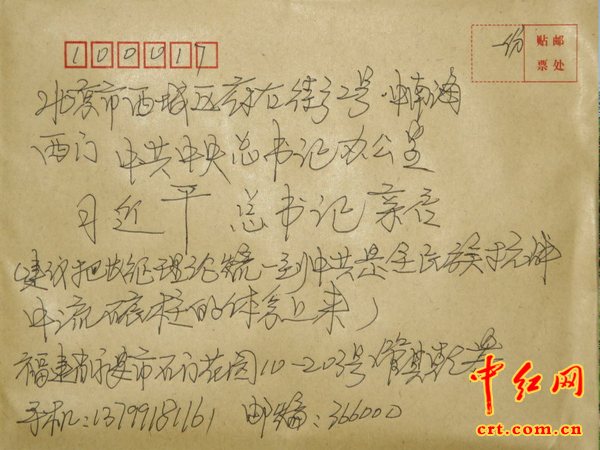 100017
一份
贴邮
票处
北京市西城区府右街2号中南海
西门 中共中央总书记办公室
习近平 总书记 亲启
(建议把长征理论统一到中共是全民族抗战
中流砥柱的体系上来)
福建省永安市石门花园10-203号 管其乾 寄
手机:13799181161 邮编:366000
中红网
crt.com.cn